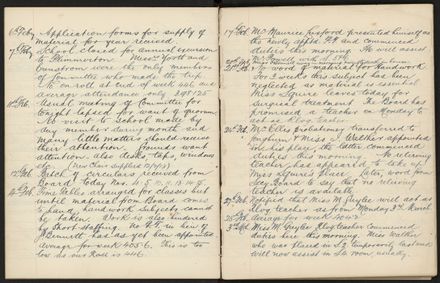 6th Feby Application forms for supply of
material for year received.
7th Feby School closed for annual excursion
to Plimmerton. Messrs Yortt and
were the only members
of Committee who made the trip
No. on roll at end of week 446 and
average attendance only 298.25
10th Feb. Usual meeting of Committee for
Capt lapsed for want of quorum
No visit to school made by
any member during month and
Many little matters should receive
their attention. Grounds want
attention, also desks, taps, windows
etc. (New
12th Feb. Batch of circulars received from
Board today Nos.
14th Feb. Time Tables arranged for classes but
until material from Board comes
to hand, handwork subjects cannot
be taken. Work is also hindered
by short staffing. No A.T. in lieu of
Bennett has as yet been appointed
Average for week 405.6. This is so
low as our Roll is 446.
17th Feb. Mr Maurice presented himself as
the newly apptd P.T. and commenced
duties this morning. He will assist
Mr Powell with
No word of material for Handwork
For 3 weeks this subject has been
neglected as material is essential
Miss Squire leaves today for
surgical treatment. The Board has
promised a teacher on Monday to
act as Relvg Teacher.
24th Feb. Mr Ellis probationary transferred to
and Miss J. Welther appointed
in his place, the latter commenced
duties this morning. No relieving
teacher has appeared to take up
Miss Squire's place. Later, word from
Secy Board to say that no relieving
teacher is available
27th Feb. Notified that Miss M. Greylee will act as
Relvg teacher as from Monday 3rd March
28th Feb. Average for week
3rd Mch Miss M. Greylee Relvg teacher commenced
duties here this morning. Miss Welther
who was placed in S.2 temporarily last week
will now assist in S.4 room, usually.